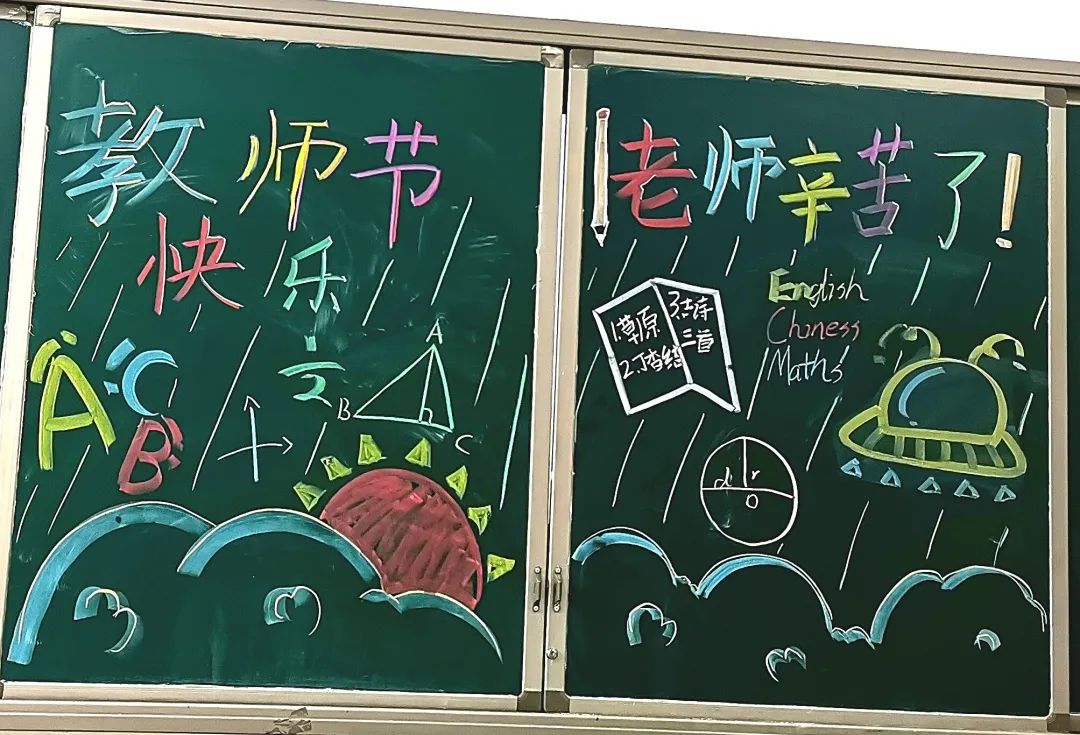 教师节
快乐
A
C
B
1
2
A
B
h
C
老师辛苦了!
1.草原
2.丁香结
3.古诗
三首
English
Chiness
Maths
d r
O